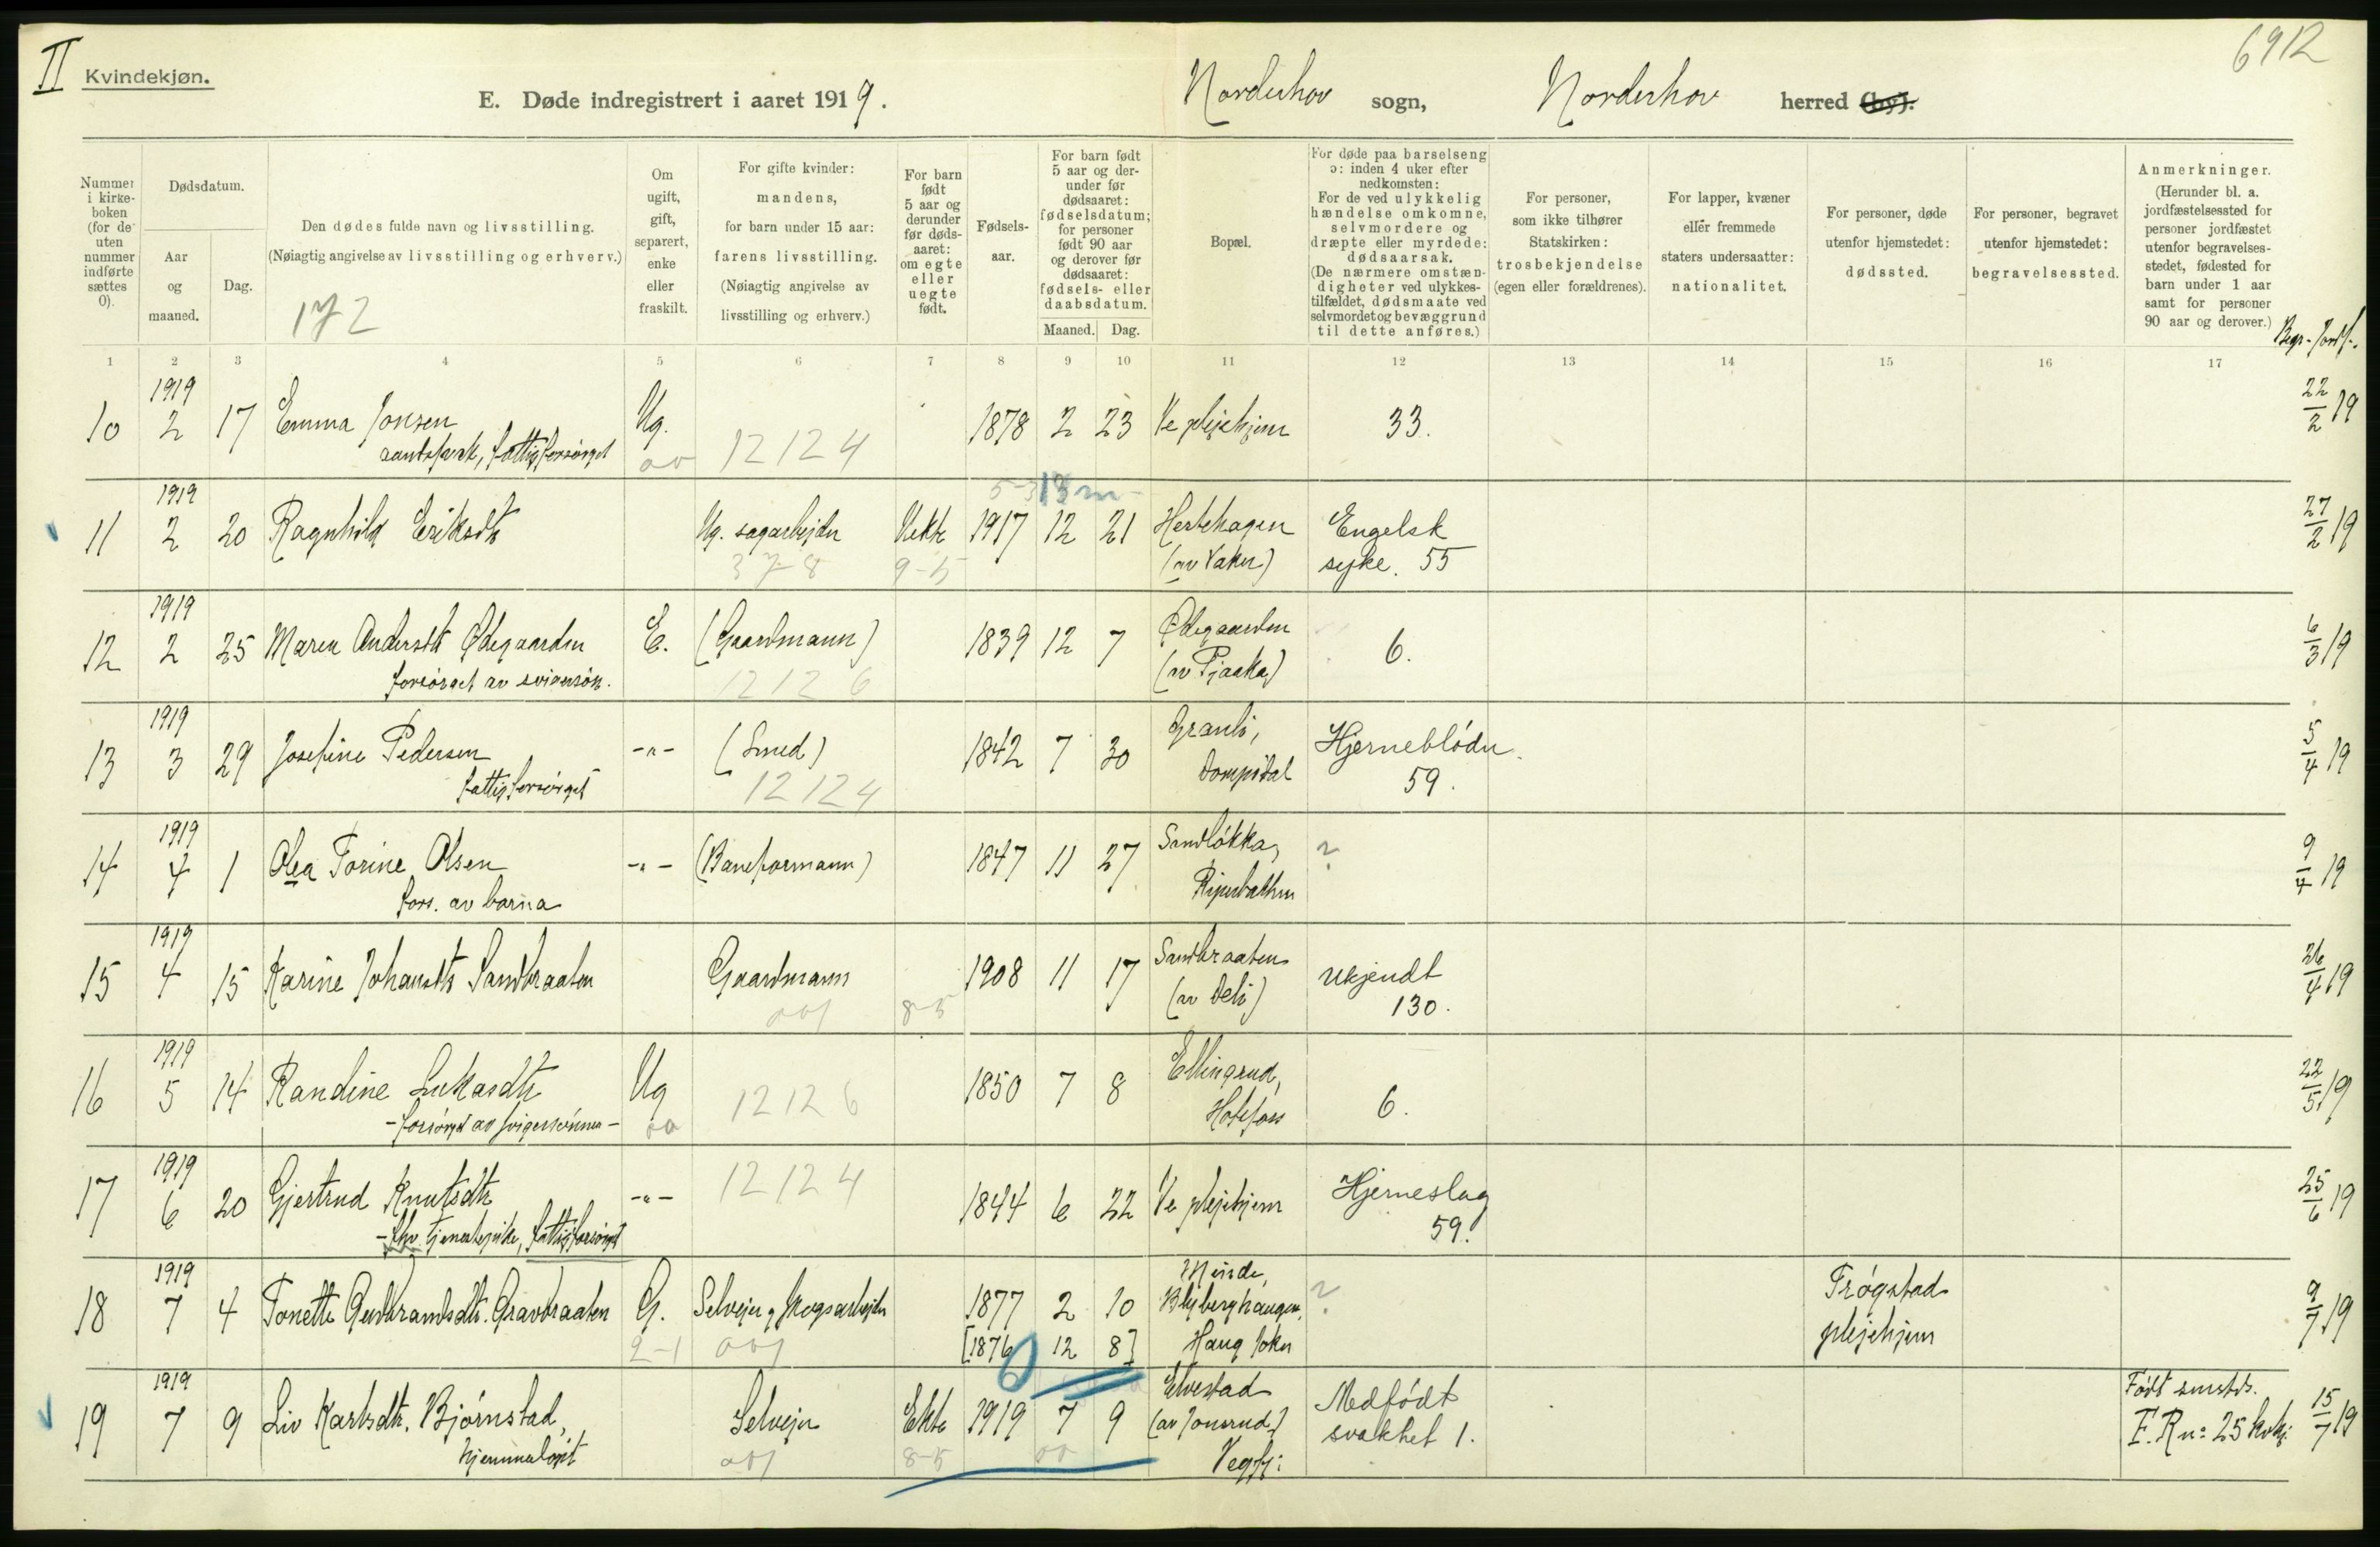 II
Kvindekjøn.
6912
E. Døde indregistrert i aaret 1919.
Norderhov sogn, Norderhov herred (by).
Nummer i kirkeboken (for de uten nummer indførte sættes 0).
Dødsdatum.
Aar og maaned.
Dag.
Den dødes fulde navn og livsstilling.
(Nøiagtig angivelse av livsstilling og erhverv.)
172
Om ugift, gift, separert, enke eller fraskilt.
For gifte kvinder: mandens, for barn under 15 aar: farens livsstilling.
(Nøiagtig angivelse av livsstilling og erhverv.)
For barn født 5 aar og derunder før dødsaaret: om egte eller uegte født.
Fødselsaar.
For barn født 5 aar og derunder før dødsaaret: fødselsdatum; for personer født 90 aar og derover før dødsaaret: fødsels- eller daabsdatum.
Maaned. Dag.
Bopæl.
For døde paa barselseng ɔ: inden 4 uker efter nedkomsten:
For de ved ulykkelig hændelse omkomne, selvmordere og dræpte eller myrdede: dødsaarsak.
(De nærmere omstændigheter ved ulykkestilfældet, dødsmaate ved selvmordet og bevæggrund til dette anføres.)
For personer, som ikke tilhører Statskirken: trosbekjendelse (egen eller forældrenes).
For lapper, kvæner eller fremmede staters undersaatter: nationalitet.
For personer, døde utenfor hjemstedet: dødssted.
For personer, begravet utenfor hjemstedet: begravelsessted.
Anmerkninger.
(Herunder bl. a. jordfæstelsessted for personer jordfæstet utenfor begravelsesstedet, fødested for barn under 1 aar samt for personer 90 aar og derover.)
Begr.- Jordf.
1 2 3 4 5 6 7 8 9 10 11 12 13 14 15 16 17
1919
10 2 17 Emma Jonsen Ug. 1878 2 23 Ve plejehjem 33. 22/2 19
fattigforsørget 12124
1919 13 m
11 2 20 Ragnhild Eriksdtr Ug. sagarbejder Uekte 1917 12 21 Hestehagen Engelsk 27/2 19
378 9-5 (av Vaker) syke. 55
1919
12 2 25 Maren Andersdtr Ødegaarden E. (Gaardmann) 1839 12 7 Ødegaarden 6. 6/3 19
forsørget av svigersøn. 12126 (av Tjaaka)
1919
13 3 29 Josefine Pedersen -"- (Smed) 1842 7 30 Granli, Hjerneblödn. 5/4 19
fattigforsørget 12124 59.
1919
14 4 1 Olea Torine Olsen -"- (Baneformann) 1847 11 27 Sandløkka, ? 9/4 19
fors. av barna
1919
15 4 15 Karine Johansdtr Sandbraaten Gaardmann 1908 11 17 Sandbraaten Ukjendt 26/4 19
001 8-5 (av Deli) 130.
1919
16 5 14 Randine Lukasdtr Ug 1850 7 8 Ellingrud, 6. 22/5 19
-forsørget av svigersønnen- 12126 Hofsfoss
1919
17 6 20 Gjertrud Knutsdtr -"- 12124 1844 6 22 Ve plejehjem Hjerneslag 25/6 19
-fhv. tjenestepike, fattigforsørget 59.
1919
18 7 4 Tonette Gudbrandsdtr. Gravbraaten G. Selvejer og skogsarbejder 1877 2 10 Minde, ? Trøgstad plejehjem 9/7 19
2-1 001 [1876 12 8] Haug sokn
1919
19 7 9 Liv Karlsdtr. Bjørnstad, Selvejer Ekte 1919 7 9 Elvestad Medfödt Født smstds. 15/7 19
hjemmedøpt 001 8-5 00 (av Jonsrud) svakhet 1. F. R n: 25 kvkj.